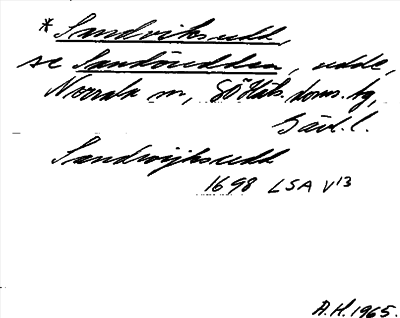 * Sandviksudd,
se Sandöudden, udde,
Norrala sn, SöHäls. doms. hg,
Gävl. l.
Sandwijksudd
1698 LSA V13
A.H. 1965.